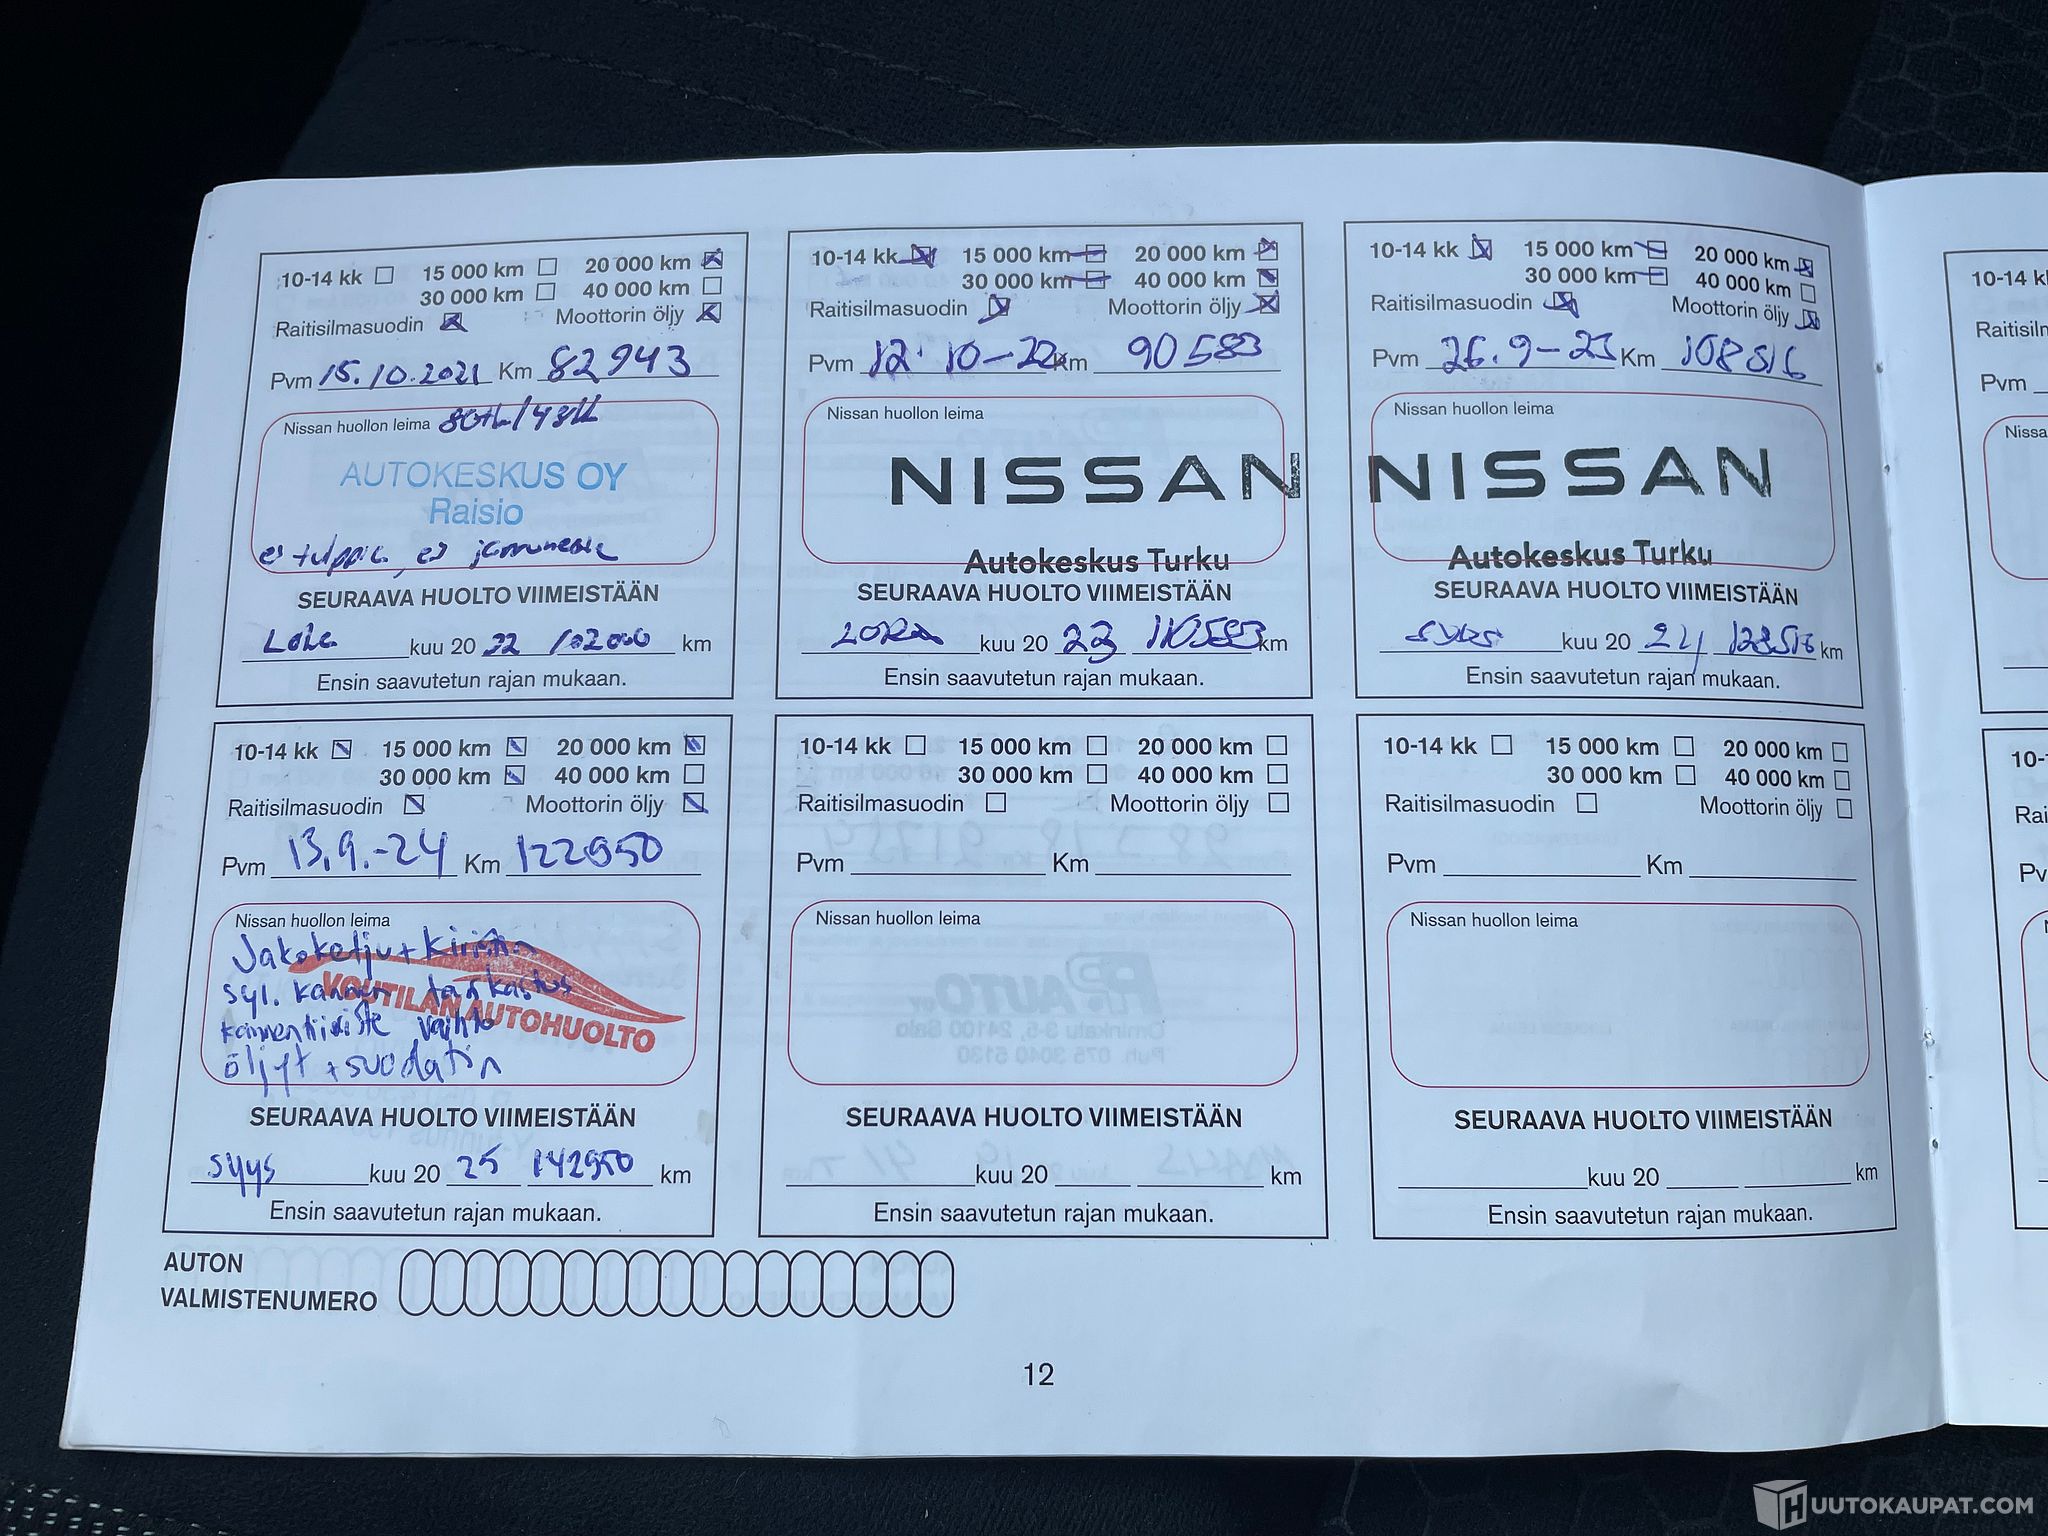 10-14 kk 15 000 km 20 000 km
30 000 km 40 000 km
Raitisilmasuodin Moottorin öljy
Pvm 15.10.2021 Km 82943
Nissan huollon leima
AUTOKESKUS OY
Raisio
ei tulppia, ei
SEURAAVA HUOLTO VIIMEISTÄÄN
Loka kuu 20 22 102000 km
Ensin saavutetun rajan mukaan.
10-14 kk 15 000 km 20 000 km
30 000 km 40 000 km
Raitisilmasuodin Moottorin öljy
Pvm 12.10-22 Km 90583
Nissan huollon leima
NISSAN
Autokeskus Turku
SEURAAVA HUOLTO VIIMEISTÄÄN
LOKA kuu 20 23 110583 km
Ensin saavutetun rajan mukaan.
10-14 kk 15 000 km 20 000 km
30 000 km 40 000 km
Raitisilmasuodin Moottorin öljy
Pvm 26.9-23 Km 108516
Nissan huollon leima
NISSAN
Autokeskus Turku
SEURAAVA HUOLTO VIIMEISTÄÄN
syys kuu 20 24 128516 km
Ensin saavutetun rajan mukaan.
10-14 kk 15 000 km 20 000 km
30 000 km 40 000 km
Raitisilmasuodin Moottorin öljy
Pvm 13.9.-24 Km 122950
Nissan huollon leima
Jakoketju + kiristin
syl. kannen tarkastus
VOUTILAN AUTOHUOLTO
kannentiiviste vaihto
öljyt + suodatin
SEURAAVA HUOLTO VIIMEISTÄÄN
syys kuu 20 25 142950 km
Ensin saavutetun rajan mukaan.
10-14 kk 15 000 km 20 000 km
30 000 km 40 000 km
Raitisilmasuodin Moottorin öljy
Pvm Km
Nissan huollon leima
SEURAAVA HUOLTO VIIMEISTÄÄN
kuu 20 km
Ensin saavutetun rajan mukaan.
10-14 kk 15 000 km 20 000 km
30 000 km 40 000 km
Raitisilmasuodin Moottorin öljy
Pvm Km
Nissan huollon leima
SEURAAVA HUOLTO VIIMEISTÄÄN
kuu 20 km
Ensin saavutetun rajan mukaan.
AUTON
VALMISTENUMERO
12
10-14
Pvm
HUUTOKAUPAT.COM